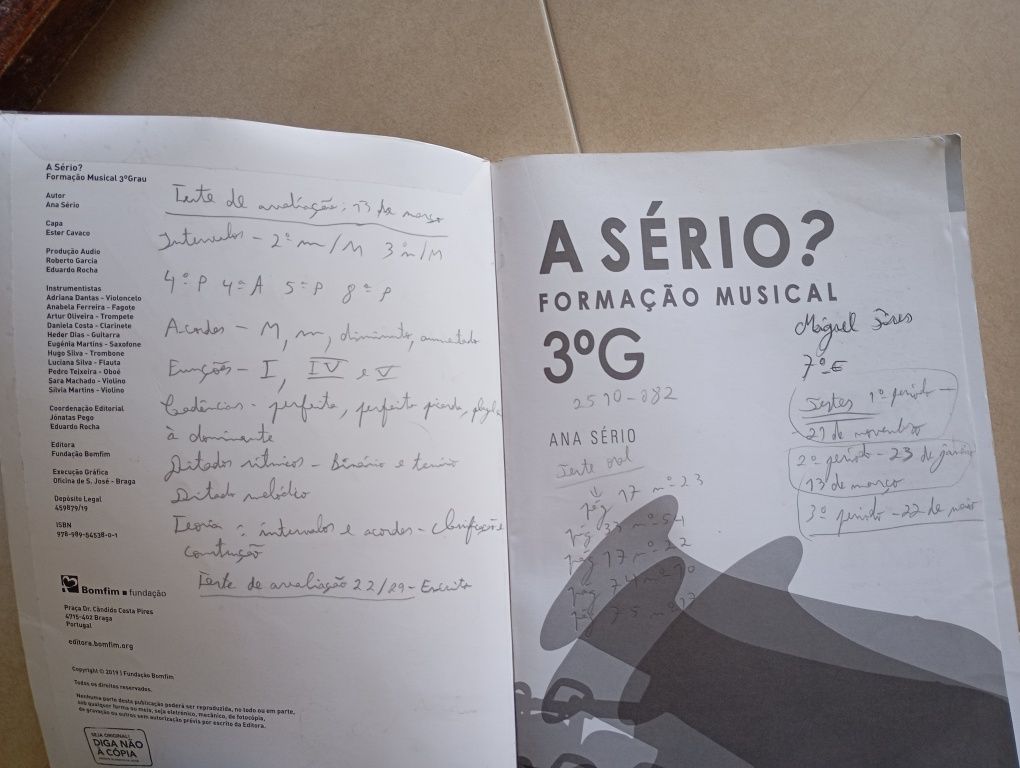 A Sério?
Formação Musical 3ºGrau
Autor
Ana Sério
Capa
Ester Cavaco
Produção Audio
Roberto Garcia
Eduardo Rocha
Instrumentistas
Adriana Dantas - Violoncelo
Anabela Ferreira - Fagote
Artur Oliveira - Trompete
Daniela Costa - Clarinete
Heder Dias - Guitarra
Eugénia Martins - Saxofone
Hugo Silva - Trombone
Luciana Silva - Flauta
Pedro Teixeira - Oboé
Sara Machado - Violino
Sílvia Martins - Violino
Coordenação Editorial
Jónatas Pego
Eduardo Rocha
Editora
Fundação Bomfim
Execução Gráfica
Oficina de S. José - Braga
Depósito Legal
459879/19
ISBN
978-989-54538-0-1
Bomfim fundação
Praça Dr. Cândido Costa Pires
4715-402 Braga
Portugal
editora.bomfim.org
Copyright © 2019 | Fundação Bomfim
Todos os direitos reservados.
Nenhuma parte desta publicação poderá ser reproduzida, no todo ou em parte,
sob qualquer forma ou meio, seja eletrónico, mecânico, de fotocópia,
de gravação ou outros sem autorização prévia por escrito da Editora.
SEJA ORIGINAL!
DIGA NÃO
À CÓPIA
Teste de avaliação: 13 de março
Intervalos - 2ª m/M 3ª m/M
4ª P 4ª A 5ª P 8ª P
Acordes - M, m, diminuto, aumentado
Funções - I, IV e V
Cadências - perfeita, perfeita picarda,
à dominante
Ditados rítmicos - Binário e ternário
Ditado melódico
Teoria: intervalos e acordes - classificação e
construção
Teste de avaliação 22/29 - Escrito
A SÉRIO?
FORMAÇÃO MUSICAL
3ºG
2510-882
ANA SÉRIO
Teste oral
pág 17 nº 23
pág 33 nº 51
pág 17 nº 22
pág 74 nº 10
pág 75 nº
Miguel
7º E
Testes 1º período -
21 de novembro
2º período - 23 de janeiro
13 de março
3º período - 22 de maio